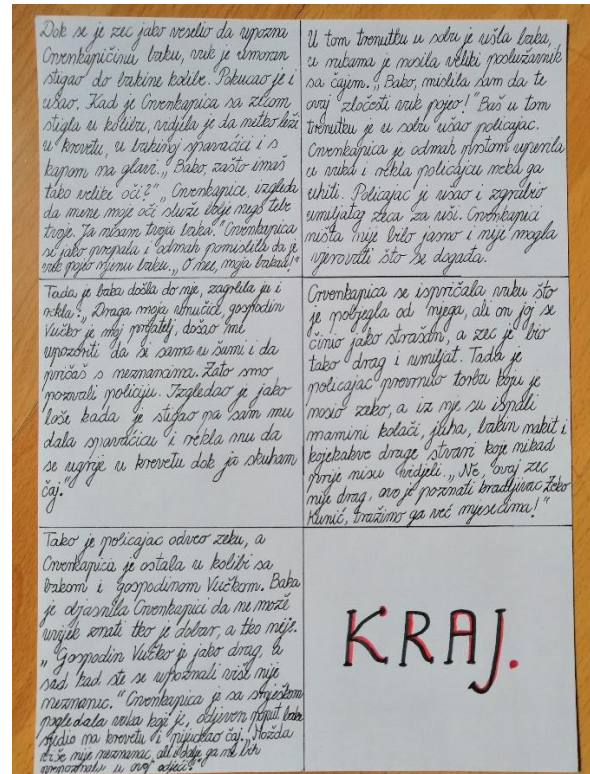 Dok se je zec jako veselio da upozna
Crvenkapičinu baku, vuk je umoran
stigao do bakine kolibe. Pokucao je i
ušao. Kad je Crvenkapica sa zecom
stigla u kolibu, vidjela je da netko leži
u krevetu, u bakinoj spavaćici i s
kapom na glavi. „Bako, zašto imaš
tako velike oči?“ „Crvenkapice, izgleda
da mene moje oči služe bolje nego tebe
tvoje. Ja nisam tvoja baka.“ Crvenkapica
se jako prepala i odmah pomislila da je
vuk pojeo njenu baku. „O nee, moja baka!“
U tom trenutku u sobu je ušla baka,
u rukama je nosila veliki poslužavnik
sa čajem. „Bako, mislila sam da te
ovaj zločesti vuk pojeo!“ Baš u tom
trenutku je u sobu ušao policajac.
Crvenkapica je odmah prstom uperila
u vuka i rekla policajcu neka ga
uhiti. Policajac je ušao i zgrabio
umiljatog zeca za uši. Crvenkapici
ništa nije bilo jasno i nije mogla
vjerovati što se događa.
Tada je baka došla do nje, zagrlila ju i
rekla: „Draga moja unučice, gospodin
Vučko je moj prijatelj, došao me
upozoriti da si sama u šumi i da
pričaš s neznancima. Zato smo
pozvali policiju. Izgledao je jako
loše kada je stigao pa sam mu
dala spavaćicu i rekla mu da
se ugrije u krevetu dok ja skuham
čaj.“
Crvenkapica se ispričala vuku što
je pobjegla od njega, ali on joj se
činio jako strašan, a zec je bio
tako drag i umiljat. Tada je
policajac prevrnuo torbu koju je
nosio zeko, a iz nje su ispali
mamini kolači, juha, bakin nakit i
kojekakve druge stvari koje nikad
prije nisu vidjeli. „Ne, ovaj zec
nije drag, ovo je poznati kradljivac Zeko
Kunić, tražimo ga već mjesecima!“
Tako je policajac odveo zeku, a
Crvenkapica je ostala u kolibi sa
bakom i gospodinom Vučkom. Baka
je objasnila Crvenkapici da ne može
uvijek znati tko je dobar, a tko nije.
„Gospodin Vučko je jako drag, a
sad kad ste se upoznali više nije
neznanac.“ Crvenkapica je sa smješkom
pogledala vuka koji je, odjeven poput bake
sjedio na krevetu i pijuckao čaj. „Možda
više nije neznanac, ali i dalje ga ne bih
prepoznala u ovoj odjeći!“
KRAJ.